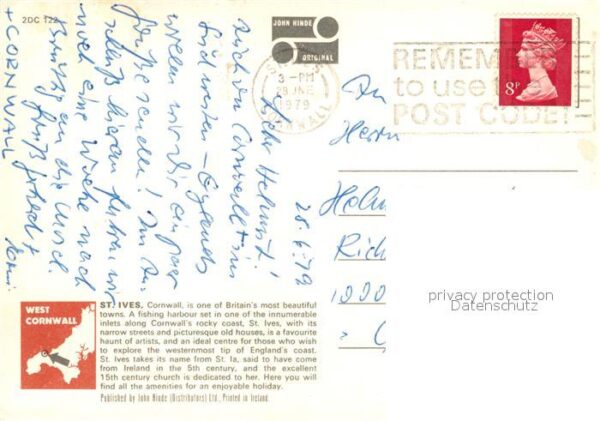 2DC 122
JOHN HINDE
ORIGINAL
3-PM
29 JNE
1979
CORNWALL
REMEMBER
to use the
POST CODE!
8P
28.6.79
Lieber Helmut!
Auch von Cornwall im
Südwesten-Englands
wollen wir Dir ein paar
Grüße senden! Im An-
schluß hieran fahren wir
noch eine Woche nach
Brüssel an die Mosel.
Gruß
+ CORNWALL
An
Herrn
privacy protection
Datenschutz
WEST
CORNWALL
ST. IVES, Cornwall, is one of Britain's most beautiful
towns. A fishing harbour set in one of the innumerable
inlets along Cornwall's rocky coast, St. Ives, with its
narrow streets and picturesque old houses, is a favourite
haunt of artists, and an ideal centre for those who wish
to explore the westernmost tip of England's coast.
St. Ives takes its name from St. Ia, said to have come
from Ireland in the 5th century, and the excellent
15th century church is dedicated to her. Here you will
find all the amenities for an enjoyable holiday.
Published by John Hinde (Distributors) Ltd., Printed in Ireland.